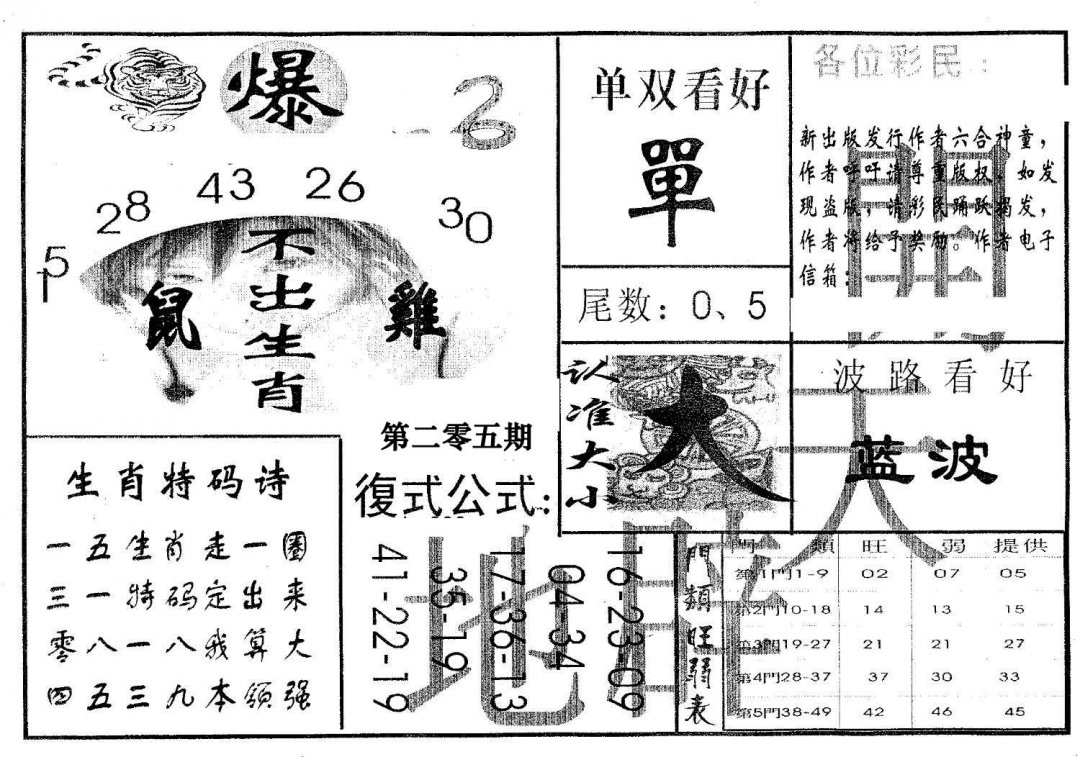 爆
26
5 28 43 26 30
鼠
不出生肖
雞
第二零五期
復式公式:
41-22-19
35-19
17-36-13
04-34
16-23-09
生肖特码诗
一五生肖走一圈
三一特码定出来
零八一八我算大
四五三九本领强
单双看好
單
尾数: 0、5
认准大小
大
各位彩民:
新出版发行作者六合神童,
作者呼吁请尊重版权,如发
现盗版,请彩民踊跃揭发,
作者将给予奖励。作者电子
信箱:
波路看好
蓝波
門類旺弱表
門類 旺 弱 提供
第1門1-9 02 07 05
第2門10-18 14 13 15
第3門19-27 21 21 27
第4門28-37 37 30 33
第5門38-49 42 46 45